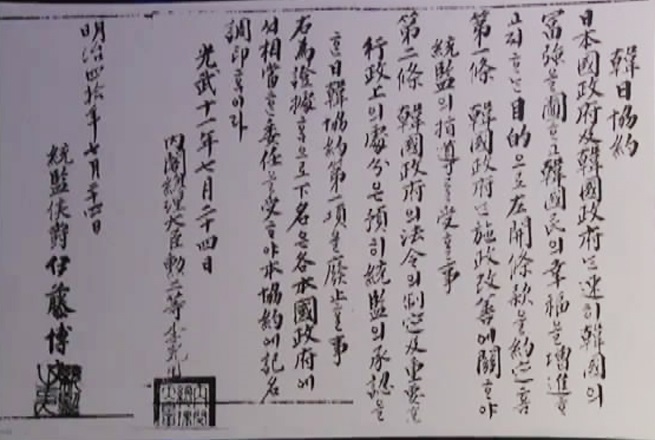 韓日協約
日本國政府及韓國政府는速히韓國의
富强을圖ᄒᆞ고韓國民의幸福을增進ᄒᆞ
고져ᄒᆞᄂᆞᆫ目的으로左開條款을約定홈
第一條 韓國政府ᄂᆞᆫ施政改善에關ᄒᆞ야
統監의指導를受ᄒᆞᆯ事
第二條 韓國政府의法令의制定及重要ᄒᆞᆫ
行政上의處分은預히統監의承認을
ᄒᆞᆫ日韓協約第一項을廢止ᄒᆞᆯ事
右爲證據홈으로下名은各本國政府에
셔相當ᄒᆞᆫ委任을受ᄒᆞ야本協約에記名
調印홈이라
光武十一年七月二十四日
內閣總理大臣勳二等李完用
明治四拾年七月二十四日
統監侯爵伊藤博